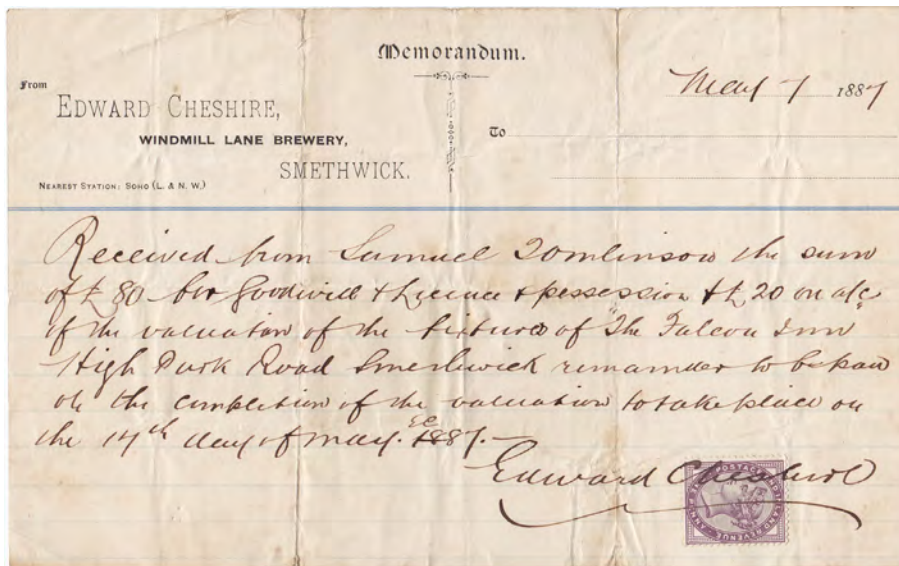 Memorandum.
May 7 1887
From
EDWARD CHESHIRE,
WINDMILL LANE BREWERY,
To
SMETHWICK.
NEAREST STATION: SOHO (L. & N. W.)
Received from Samuel Tomlinson the sum
of £80 for Goodwill & Licence & possession & £20 on a/c
of the valuation of the fixtures of "The Falcon Inn
High Park Road Smethwick remainder to be paid
on the completion of the valuation to take place on
the 14th day of May. 1887.
Edward Cheshire
POSTAGE AND INLAND REVENUE